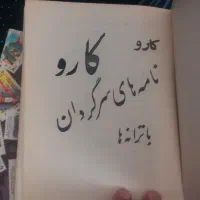 کارو
کارو
نامه های سرگردان
با ترانه ها